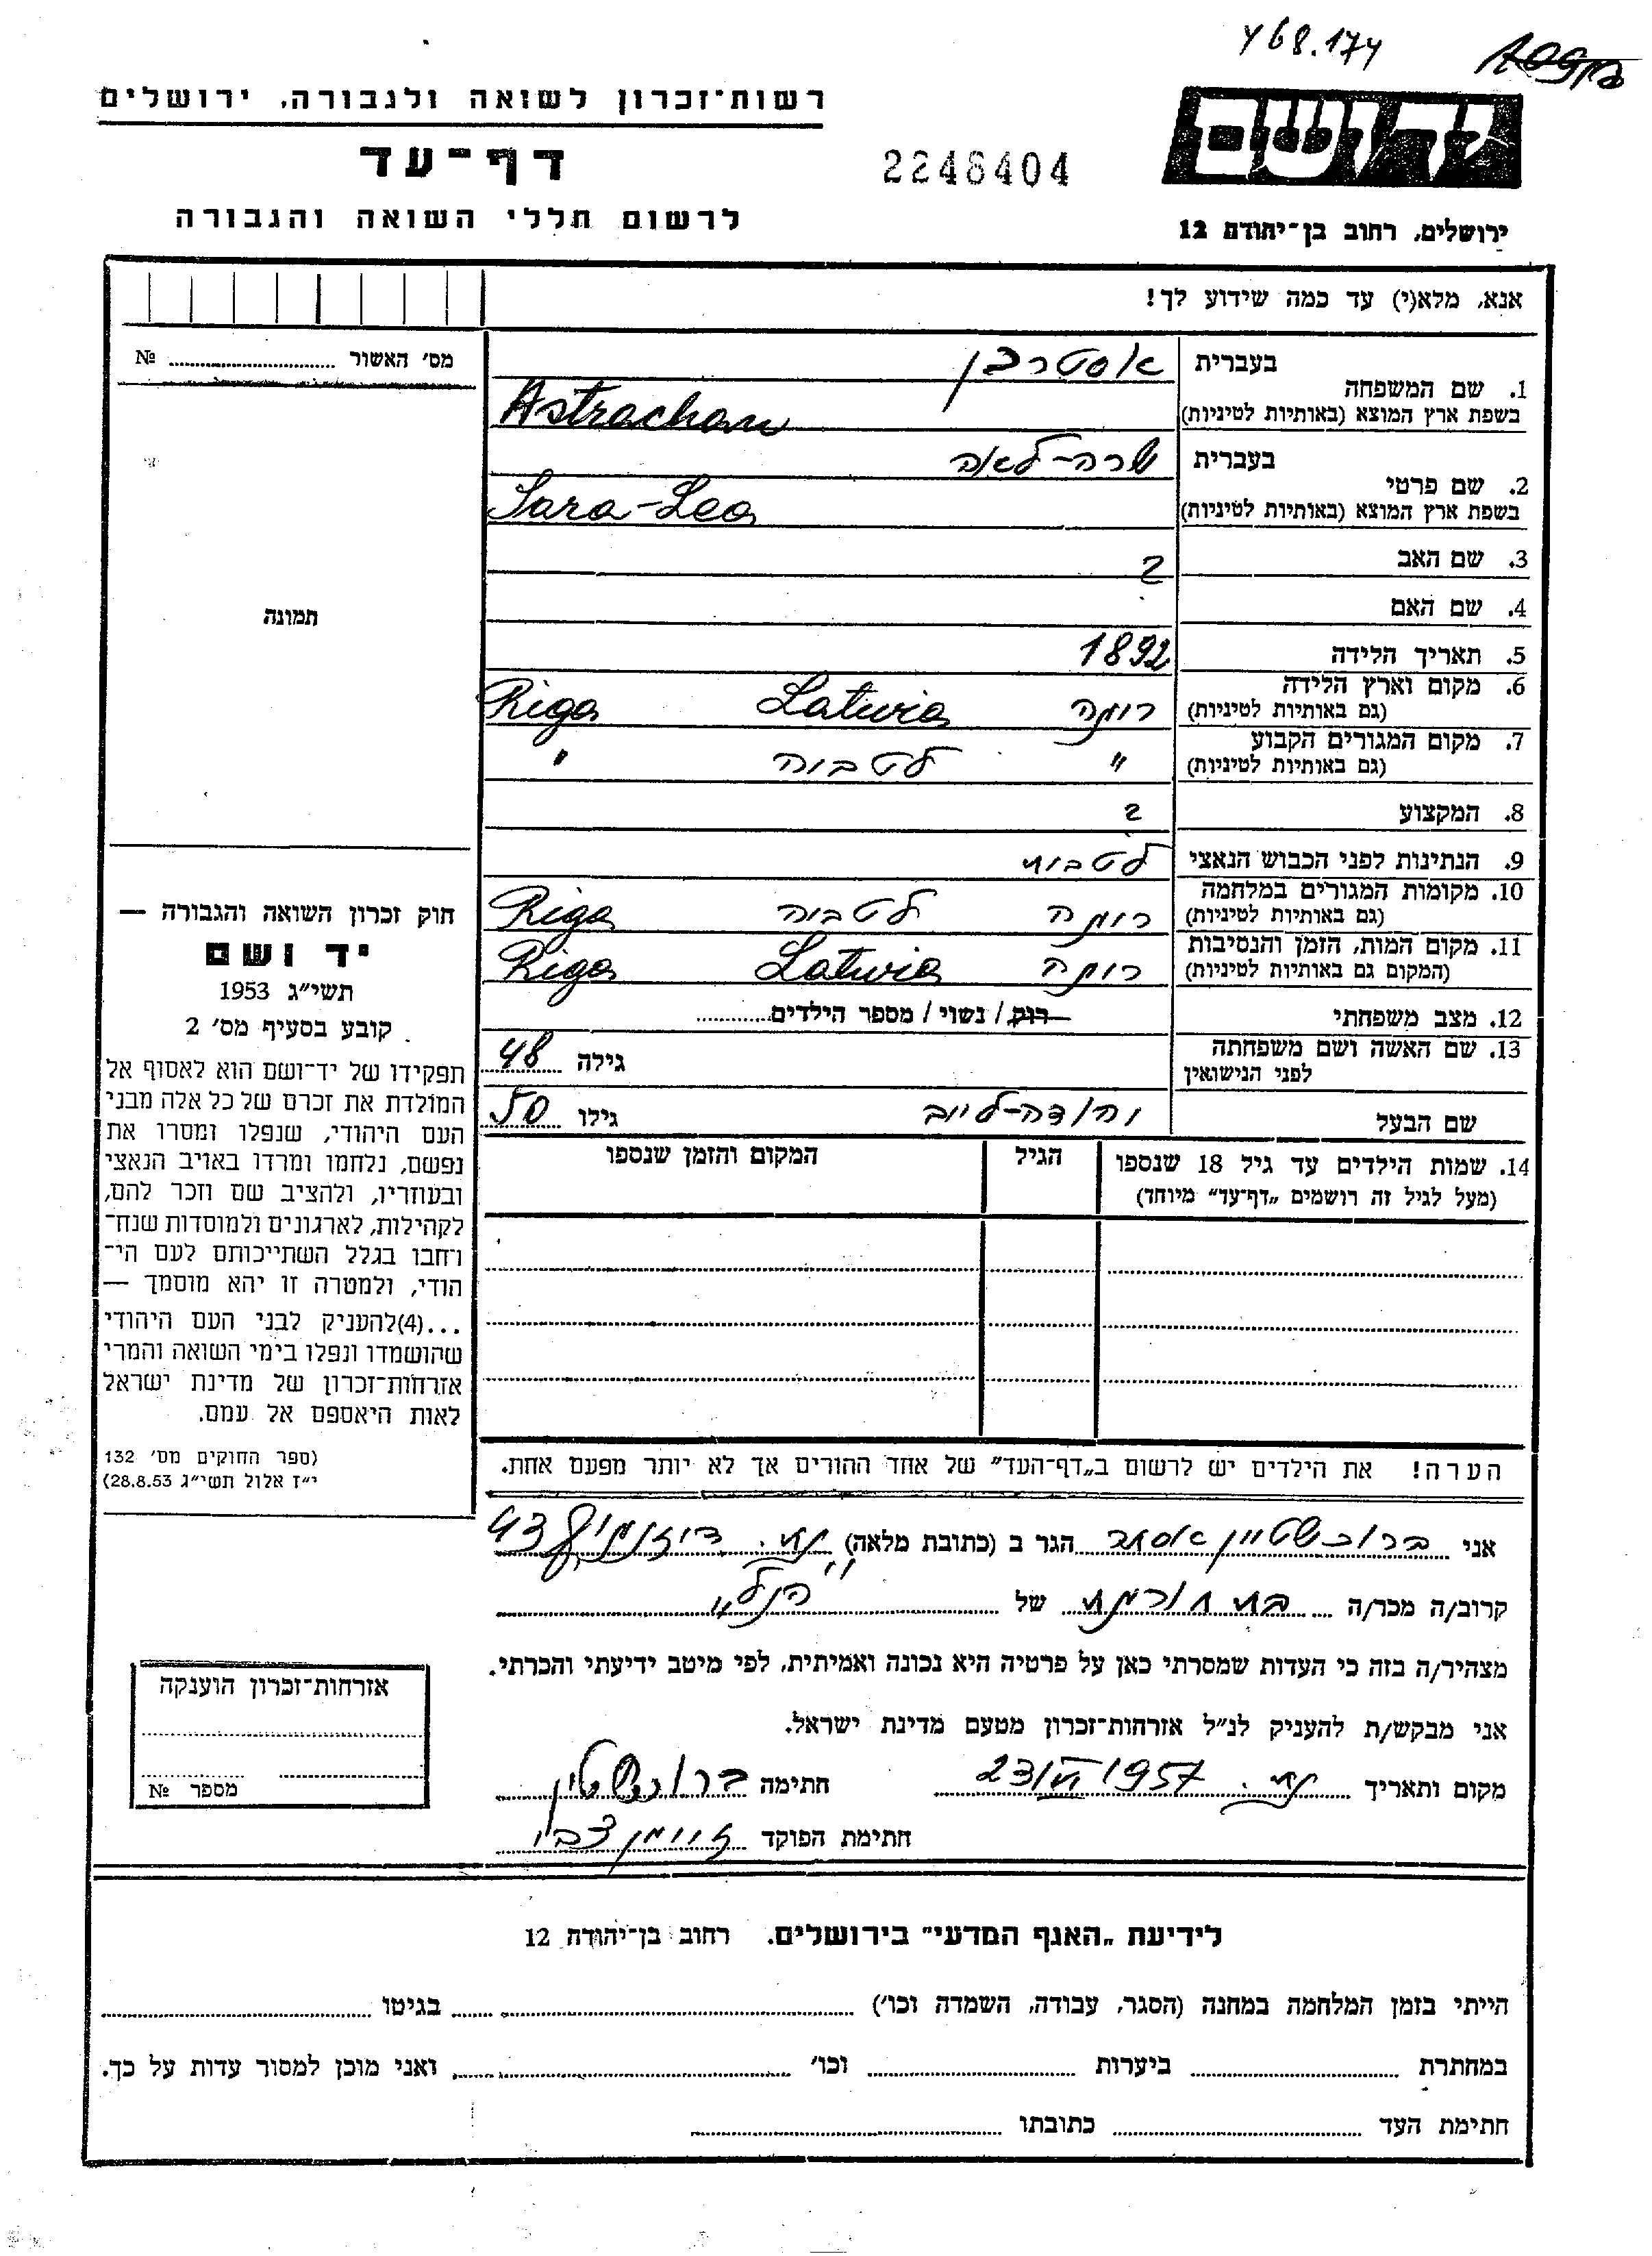 י 68.174
רשות־זכרון לשואה ולגבורה, ירושלים
דף־עד
2248404
יד ושם
לרשום חללי השואה והגבורה
ירושלים, רחוב בן־יהודה 12
אנא, מלא(י) עד כמה שידוע לך!
מס׳ האשור № 
תמונה
חוק זכרון השואה והגבורה —
יד ושם
תשי״ג 1953
קובע בסעיף מס׳ 2
תפקידו של יד־ושם הוא לאסוף אל
המולדת את זכרם של כל אלה מבני
העם היהודי, שנפלו ומסרו את
נפשם, נלחמו ומרדו באויב הנאצי
ובעוזריו, ולהציב שם וזכר להם,
לקהילות, לארגונים ולמוסדות שנח־
רחבו בגלל השתייכותם לעם הי־
הודי, ולמטרה זו יהא מוסמך —
...(4)להעניק לבני העם היהודי
שהושמדו ונפלו בימי השואה והמרי
אזרחות־זכרון של מדינת ישראל
לאות היאספם אל עמם.
(ספר החוקים מס׳ 132
י״ז אלול תשי״ג 28.8.53)
בעברית אסטרכן
1. שם המשפחה
בשפת ארץ המוצא (באותיות לטיניות) Astrachan
בעברית שרה-לאה
2. שם פרטי
בשפת ארץ המוצא (באותיות לטיניות) Sara-Lea
3. שם האב ?
4. שם האם
5. תאריך הלידה 1892
6. מקום וארץ הלידה
(גם באותיות לטיניות) ריגה Latvia Riga
7. מקום המגורים הקבוע
(גם באותיות לטיניות) " לטביה "
8. המקצוע ?
9. הנתינות לפני הכבוש הנאצי לטבית
10. מקומות המגורים במלחמה
(גם באותיות לטיניות) ריגה לטביה Riga
11. מקום המות, הזמן והנסיבות
(המקום גם באותיות לטיניות) ריגה Latvia Riga
12. מצב משפחתי רווק / נשוי / מספר הילדים
13. שם האשה ושם משפחתה
לפני הנישואין גילה 48
שם הבעל יהודה-לייב גילו 50
14. שמות הילדים עד גיל 18 שנספו הגיל המקום והזמן שנספו
(מעל לגיל זה רושמים „דף־עד״ מיוחד)
הערה! את הילדים יש לרשום ב„דף־העד״ של אחד ההורים אך לא יותר מפעם אחת.
אני ברוכשטיין אסתר הגר ב (כתובת מלאה) ת״א. דיזנגוף 43
קרוב/ה מכר/ה בת חורגת של „הנ״ל
מצהיר/ה בזה כי העדות שמסרתי כאן על פרטיה היא נכונה ואמיתית, לפי מיטב ידיעתי והכרתי.
אני מבקש/ת להעניק לנ״ל אזרחות־זכרון מטעם מדינת ישראל.
מקום ותאריך ת״א. 23/VI 1957 חתימה ברוכשטיין
חתימת הפוקד
אזרחות־זכרון הוענקה
מספר №
לידיעת „האגף המדעי״ בירושלים. רחוב בן־יהודה 12
הייתי בזמן המלחמה במחנה (הסגר, עבודה, השמדה וכו׳) בגיטו
במחתרת ביערות וכו׳ ואני מוכן למסור עדות על כך.
חתימת העד כתובתו